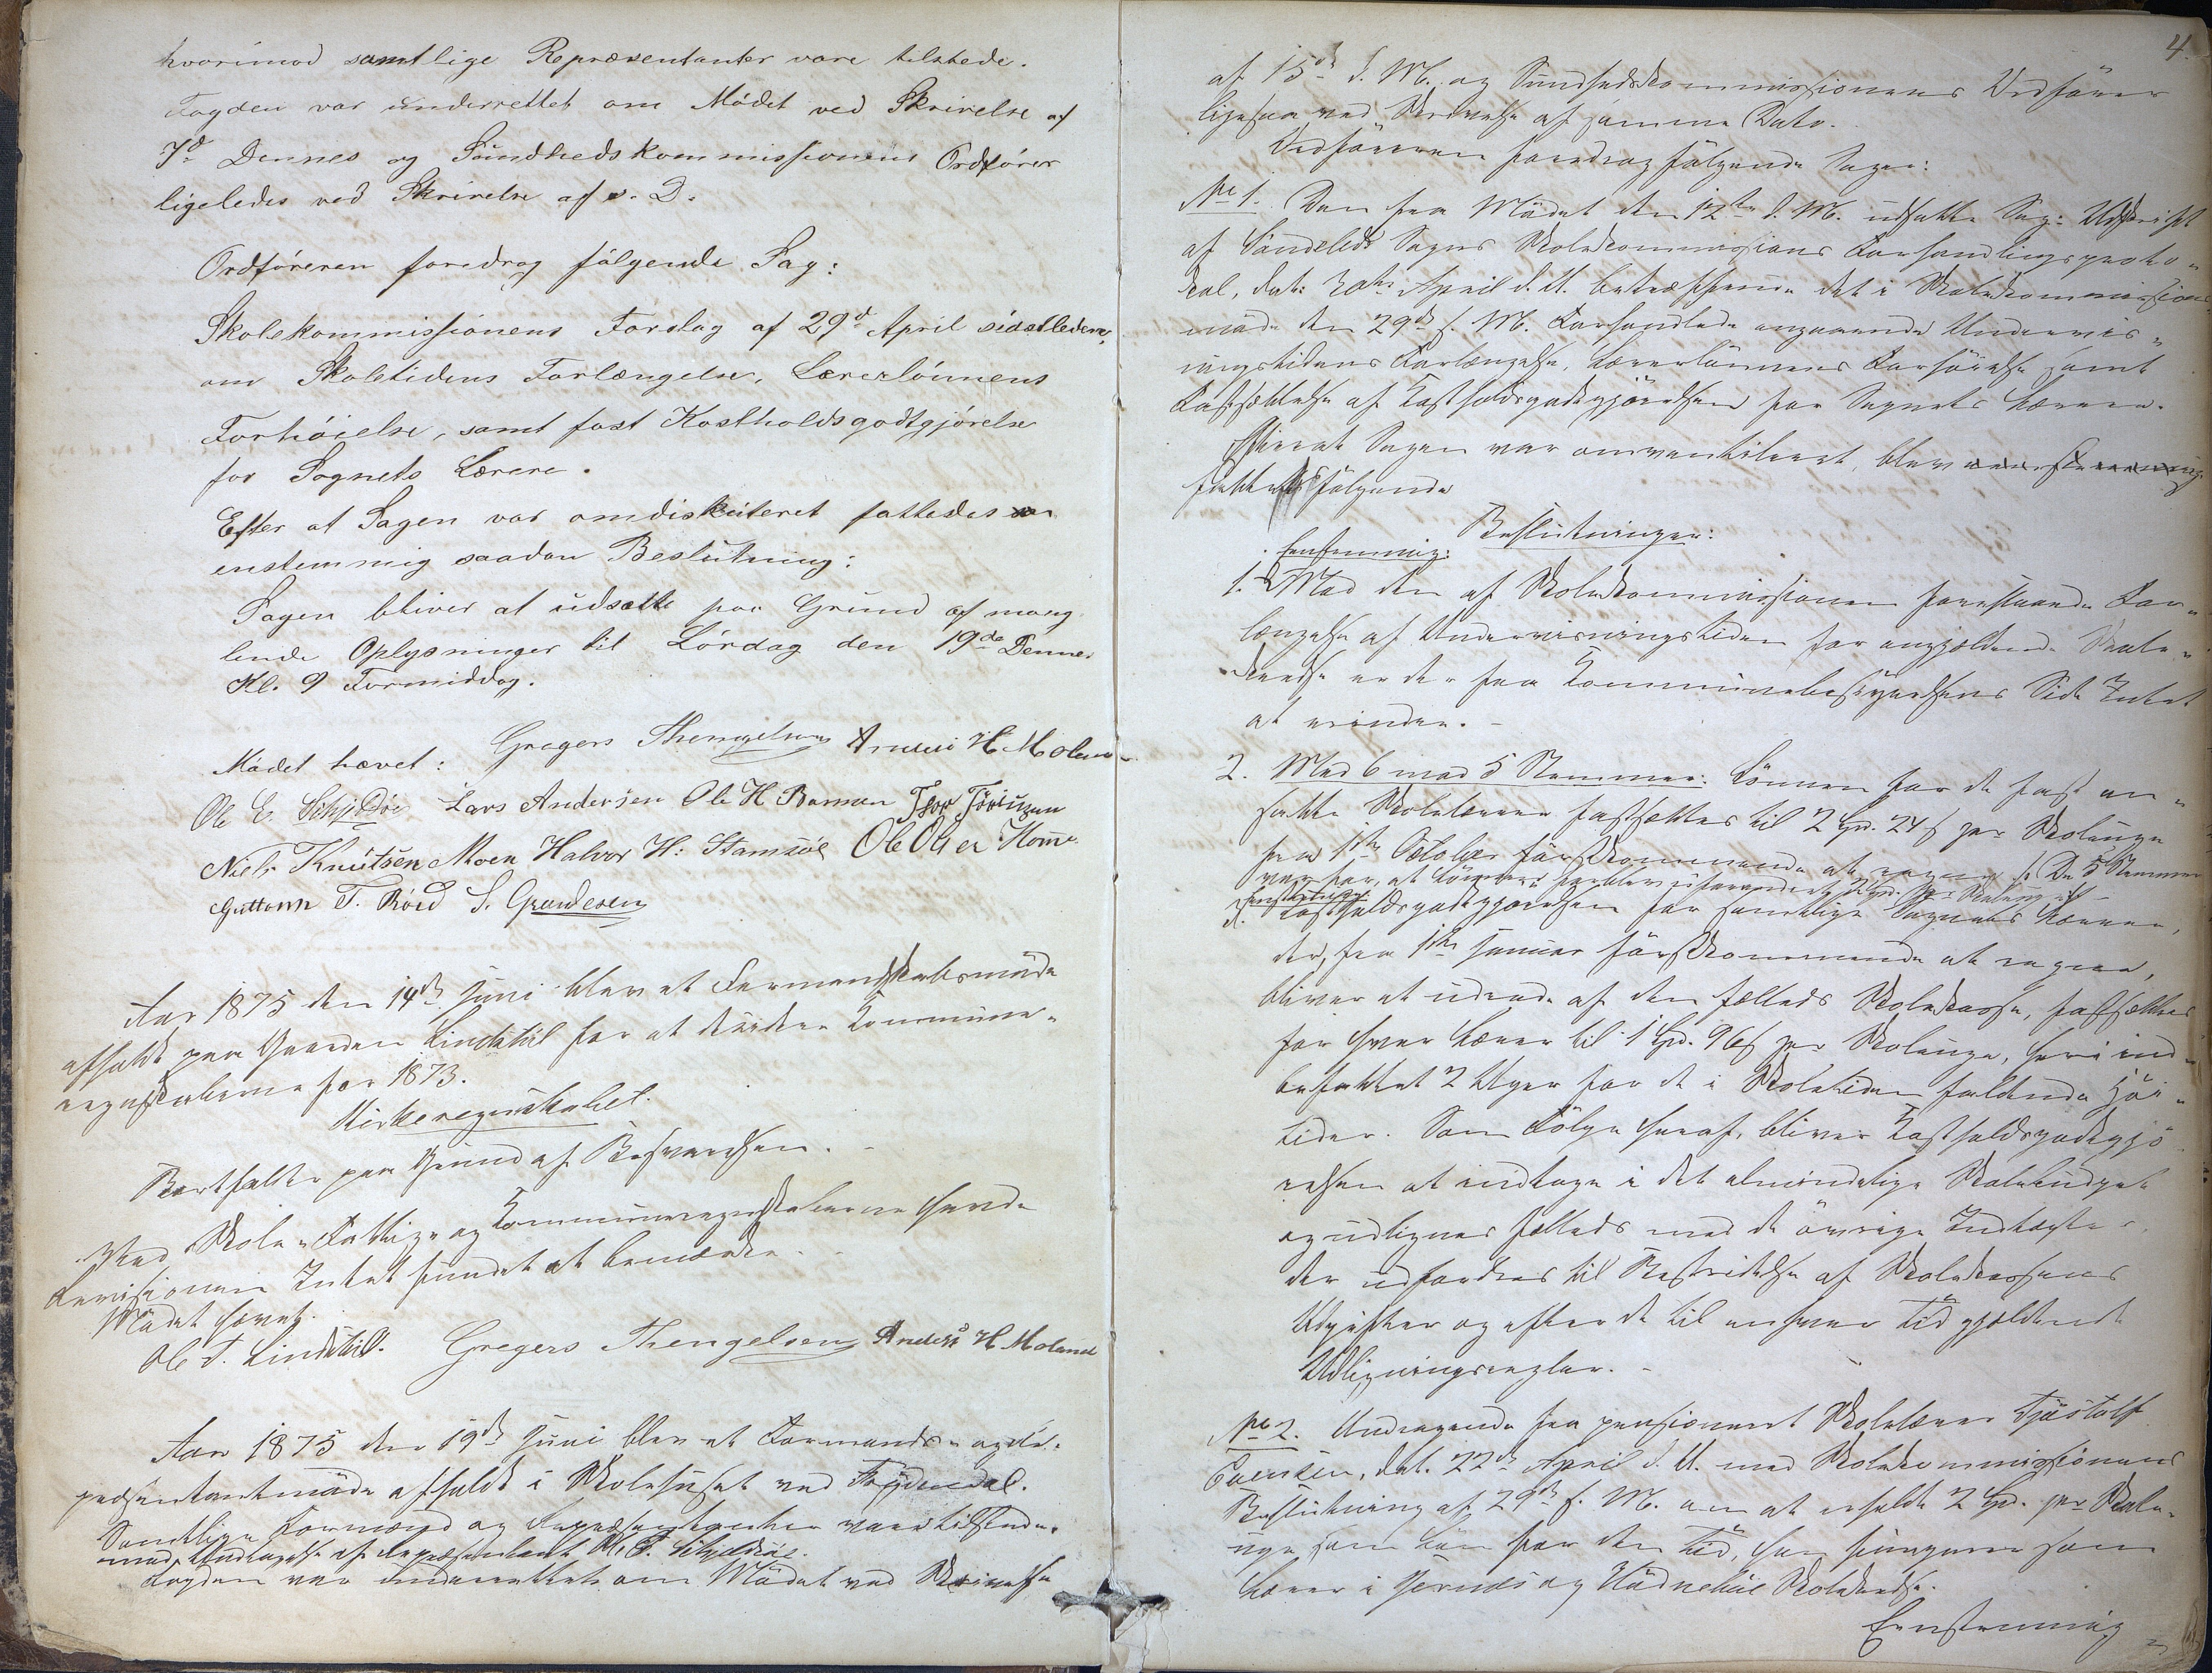 hvorimod samtlige Repræsentanter vare tilstede.
Fogden var underrettet om Mödet ved Skrivelse af
7d Dennes og Sundhedskommissionens Ordförer
ligeledes ved Skrivelse af s. D.
Ordföreren foredrog fölgende Sag:
Skolekommissionens Forslag af 29d April sidstleden,
om Skoletidens Forlængelse, Lærerlönnens
Forhöielse, samt fast Kostholdsgodtgjörelse
for Sognets Lærere.
Efter at Sagen var omdiskuteret fattedes
enstemmig saadan Beslutning:
Sagen bliver at udsætte paa Grund af mang
lende Oplysninger til Lördag den 19de Dennes
Kl. 9 Formiddag.
Mödet hævet: Gregers Thengelsen Anders H Moland
Ole E. Schjeldsöe Lars Andersen Ole H Barmen
Niels Knutsen Moen Halvor H: Stamsöe Ole Olsen Home
Guttorm T. Röed S. Gundesen
Aar 1875 den 14de Juni blev et Formandskabsmöde
afholdt paa Gaarden Lindstöl for at decidere Kommune-
regnskaberne for 1873.
Kirkeregnskabet.
Bortfaldt paa Grund af Besvarelsen.
Ved Skole- Fattig- og Kommuneregnskaberne havde
Revisionen Intet fundet at bemærke.
Mödet hævet.
Ole T. Lindstöl. Gregers Thengelsen Anders H Moland
Aar 1875 den 19de Juni blev et Formands- og Re-
præsentantmöde afholdt i Skolehuset ved Frydendal.
Samtlige Formænd og Repræsentanter vare tilstede.
med Undtagelse af Repræsentant Ole E. Schjeldsöe.
Fogden var underrettet om Mödet ved Skrivelse
4.
af 15de d. M. og Sundhedskommissionens Ordförer
ligesaa ved Skrivelse af samme Dato.
Ordföreren foredrog fölgende Sager:
No 1. Den fra Mödet den 12te d. M. udsatte Sag: Udskrift
af Söndeleds Sogns Skolekommissions Forhandlingsproto-
kol, dat. 30te April d. A. betræffende det i Skolekommissions
möde den 29de s. M. Forhandlede angaaende Undervis-
ningstidens Forlængelse, Lærerlönnens Forhöielse samt
Fastsættelse af Kostholdsgodtgjörelsen for Sognets Lærere.
Efterat Sagen var omventileret, blev
fattet fölgende
Beslutninger:
Eenstemmig:
1. Mod den af Skolekommissionen foreslaaede For-
længelse af Undervisningstiden for angjældende Skole-
kredse er der fra Kommunebestyrelsens Side Intet
at erindre.-
2. Med 6 mod 5 Stemmer: Lönnen for de fast an-
satte Skolelærere fastsættes til 2 Spd. 24 s per Skoleuge
fra 1ste October förstkommende at regne. De 5 Stemmer
var for, at Lönnen forblev uforandret 2 Spd. per Skoleuge.
Eenstemmig:
3. Kostholdsgodtgjörelsen for samtlige Sognets Lærere,
der, fra 1ste Januar förstkommende at regne,
bliver at udrede af den fælleds Skolekasse, fastsættes
for hver Lærer til 1 Spd. 96 s per Skoleuge, heri ind-
befattet 2 Uger for de i Skoletiden faldende Höi-
tider. Som Fölge heraf, bliver Kostholdsgodtgjö
relsen at indtage i det almindelige Skolebudget
og udlignes fælleds med de övrige Indtægter,
der udfordres til Bestridelse af Skolekassens
Udgifter og efter de til enhver Tid gjældende
Udligningsregler.-
No 2. Andragende fra pensioneret Skolelærer Tjöstolf
Evensen, dat. 22de April d. A. med Skolekommissionens
Beslutning af 29de s. M. om at erholde 2 Spd. per Skole-
uge som Lön for den Tid, han fungerer som
Lærer i Jernæs og Hödnebö Skolekredse.
Eenstemmig